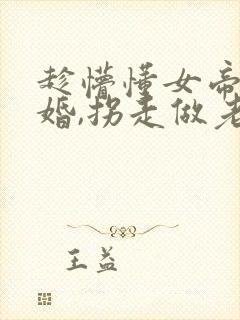 趁懵懂女帝
婚,拐走做老
王益